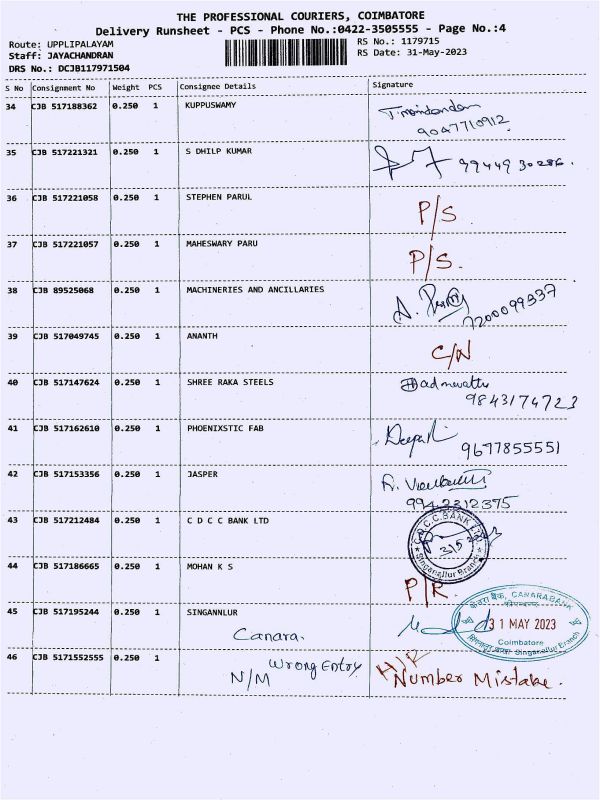 THE PROFESSIONAL COURIERS, COIMBATORE
Delivery Runsheet - PCS - Phone No.:0422-3505555 - Page No.:4
Route: UPPLIPALAYAM
RS No.: 1179715
Staff: JAYACHANDRAN
RS Date: 31-May-2023
DRS No.: DCJB117971504
S No Consignment No Weight PCS Consignee Details Signature
34 CJB 517188362 0.250 1 KUPPUSWAMY
9047710912
35 CJB 517221321 0.250 1 S DHILP KUMAR 9944930286.
36 CJB 517221058 0.250 1 STEPHEN PARUL P/S
37 CJB 517221057 0.250 1 MAHESWARY PARU P/S.
38 CJB 89525068 0.250 1 MACHINERIES AND ANCILLARIES
7200099337
39 CJB 517049745 0.250 1 ANANTH C/N
40 CJB 517147624 0.250 1 SHREE RAKA STEELS
9843174723
41 CJB 517162610 0.250 1 PHOENIXSTIC FAB Deepak
9677855551
42 CJB 517153356 0.250 1 JASPER
9942312375
43 CJB 517212484 0.250 1 C D C C BANK LTD
C.D.C.C.BANK LTD
Singanallur Branch
44 CJB 517186665 0.250 1 MOHAN K S P/R
45 CJB 517195244 0.250 1 SINGANNLUR
Canara.
केनरा बैंक, CANARA BANK
31 MAY 2023
Coimbatore
Singanallur Branch
46 CJB 5171552555 0.250 1
Wrong Entry
N/M
Number Mistake.